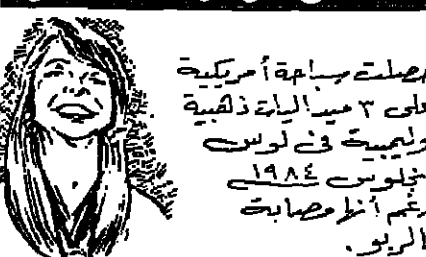 حصلت سباحة أمريكية
على ٣ ميداليات ذهبية
ولمبية فى لوس
نجلوس ١٩٨٤
رغم أنها مصابة
الربو.